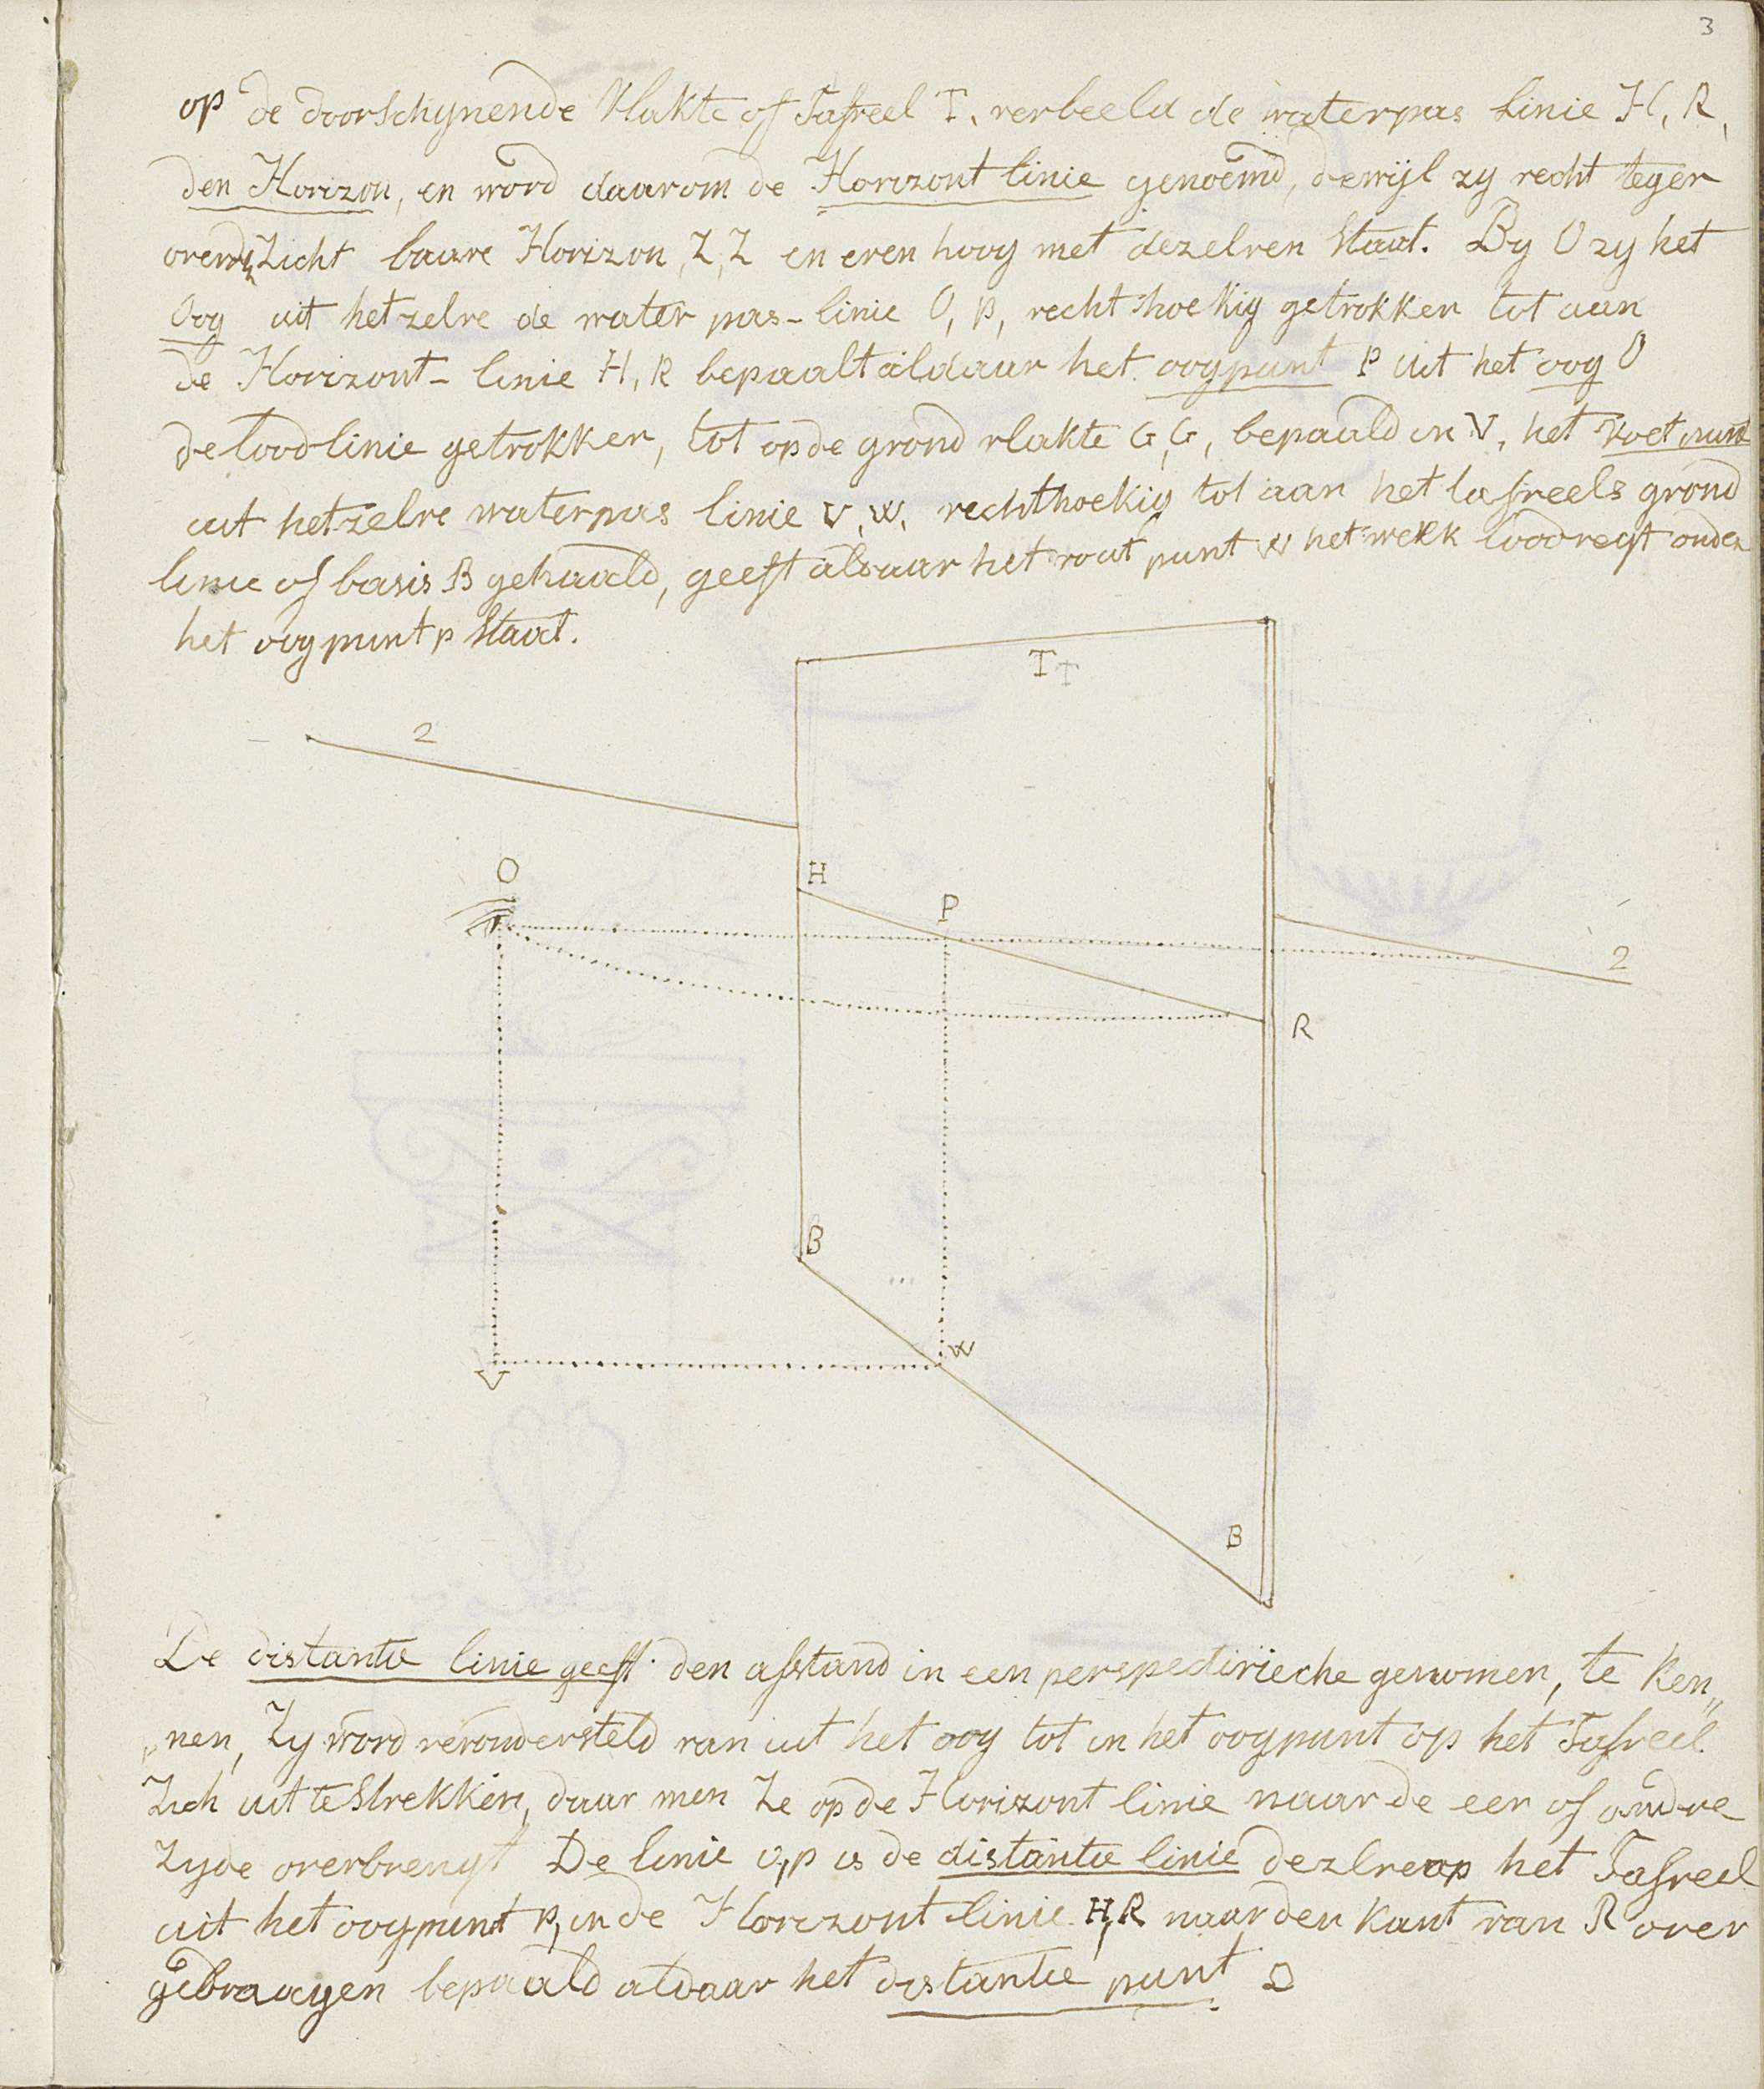 3
op de doorschynende Vlakte of Tafreel T, verbeeld de waterpas Linie H, R,
den Horizon, en word daarom de Horizont linie genoemd, dewijl zy recht tegen
over de Zicht baare Horizon, Z, Z en even hoog met dezelven Staat. By O zy het
Oog uit het zelve de water pas-linie O, P, recht hoekig getrokken tot aan
de Horizont-linie H, R bepaalt aldaar het oogpunt P uit het oog O
de loodlinie getrokken, tot op de grond vlakte G, G, bepaald in V, het Voet punt
uit het zelve waterpas linie V, W, rechthoekig tot aan het tafreels grond
linie of basis B gehaald, geeft aldaar het voet punt W het welk loodregt onder
het oog punt p Staat.
T T
2
O
H
P
2
R
B
W
V
B
De distantie linie geeft den afstand in een perspectivieche genomen, te Ken„
„nen, Zy word verondersteld van uit het oog tot in het oogpunt op het Tafreel
Zich uit te Strekken, daar men Ze op de Horizont linie naar de een of andre
Zyde overbrengt De linie O, p is de distantie linie dezlve op het Tafreel
uit het oogpunt P, in de Horizont linie H, R naar den Kant van R over
gebraagen bepaald aldaar het distantie punt D